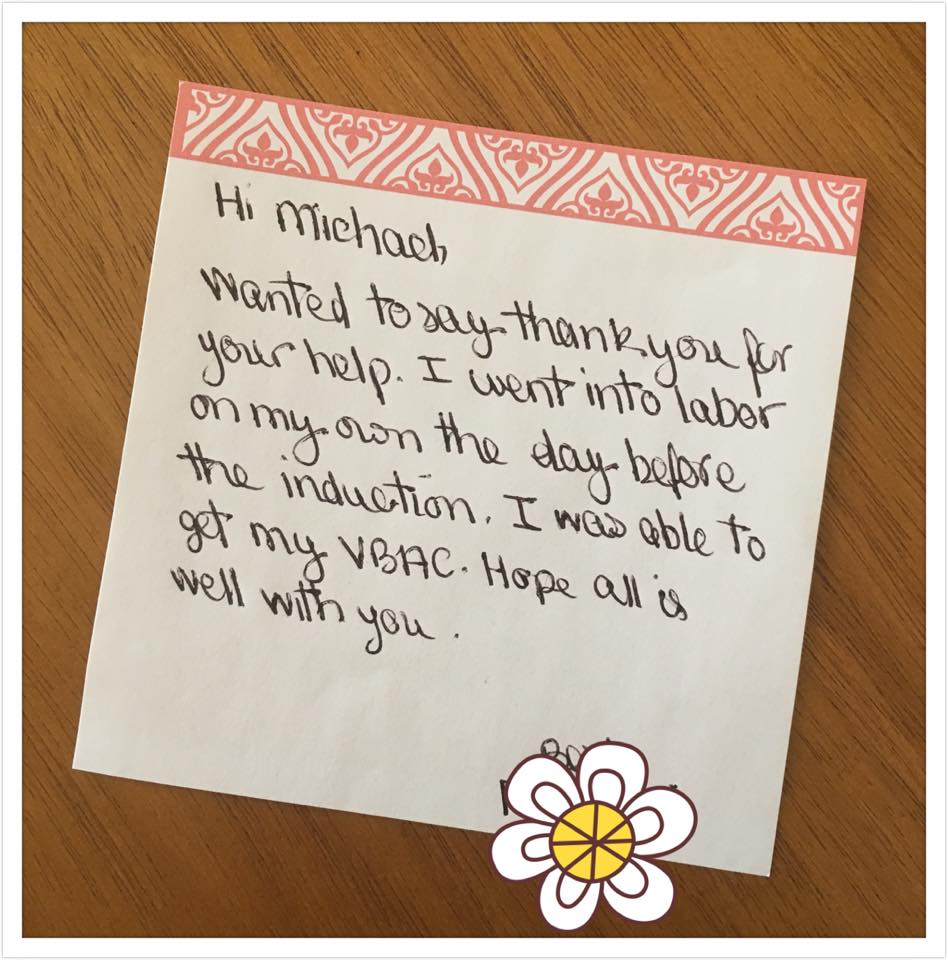 Hi Michael,
wanted to say thank you for
your help. I went into labor
on my own the day before
the induction. I was able to
get my VBAC. Hope all is
well with you.